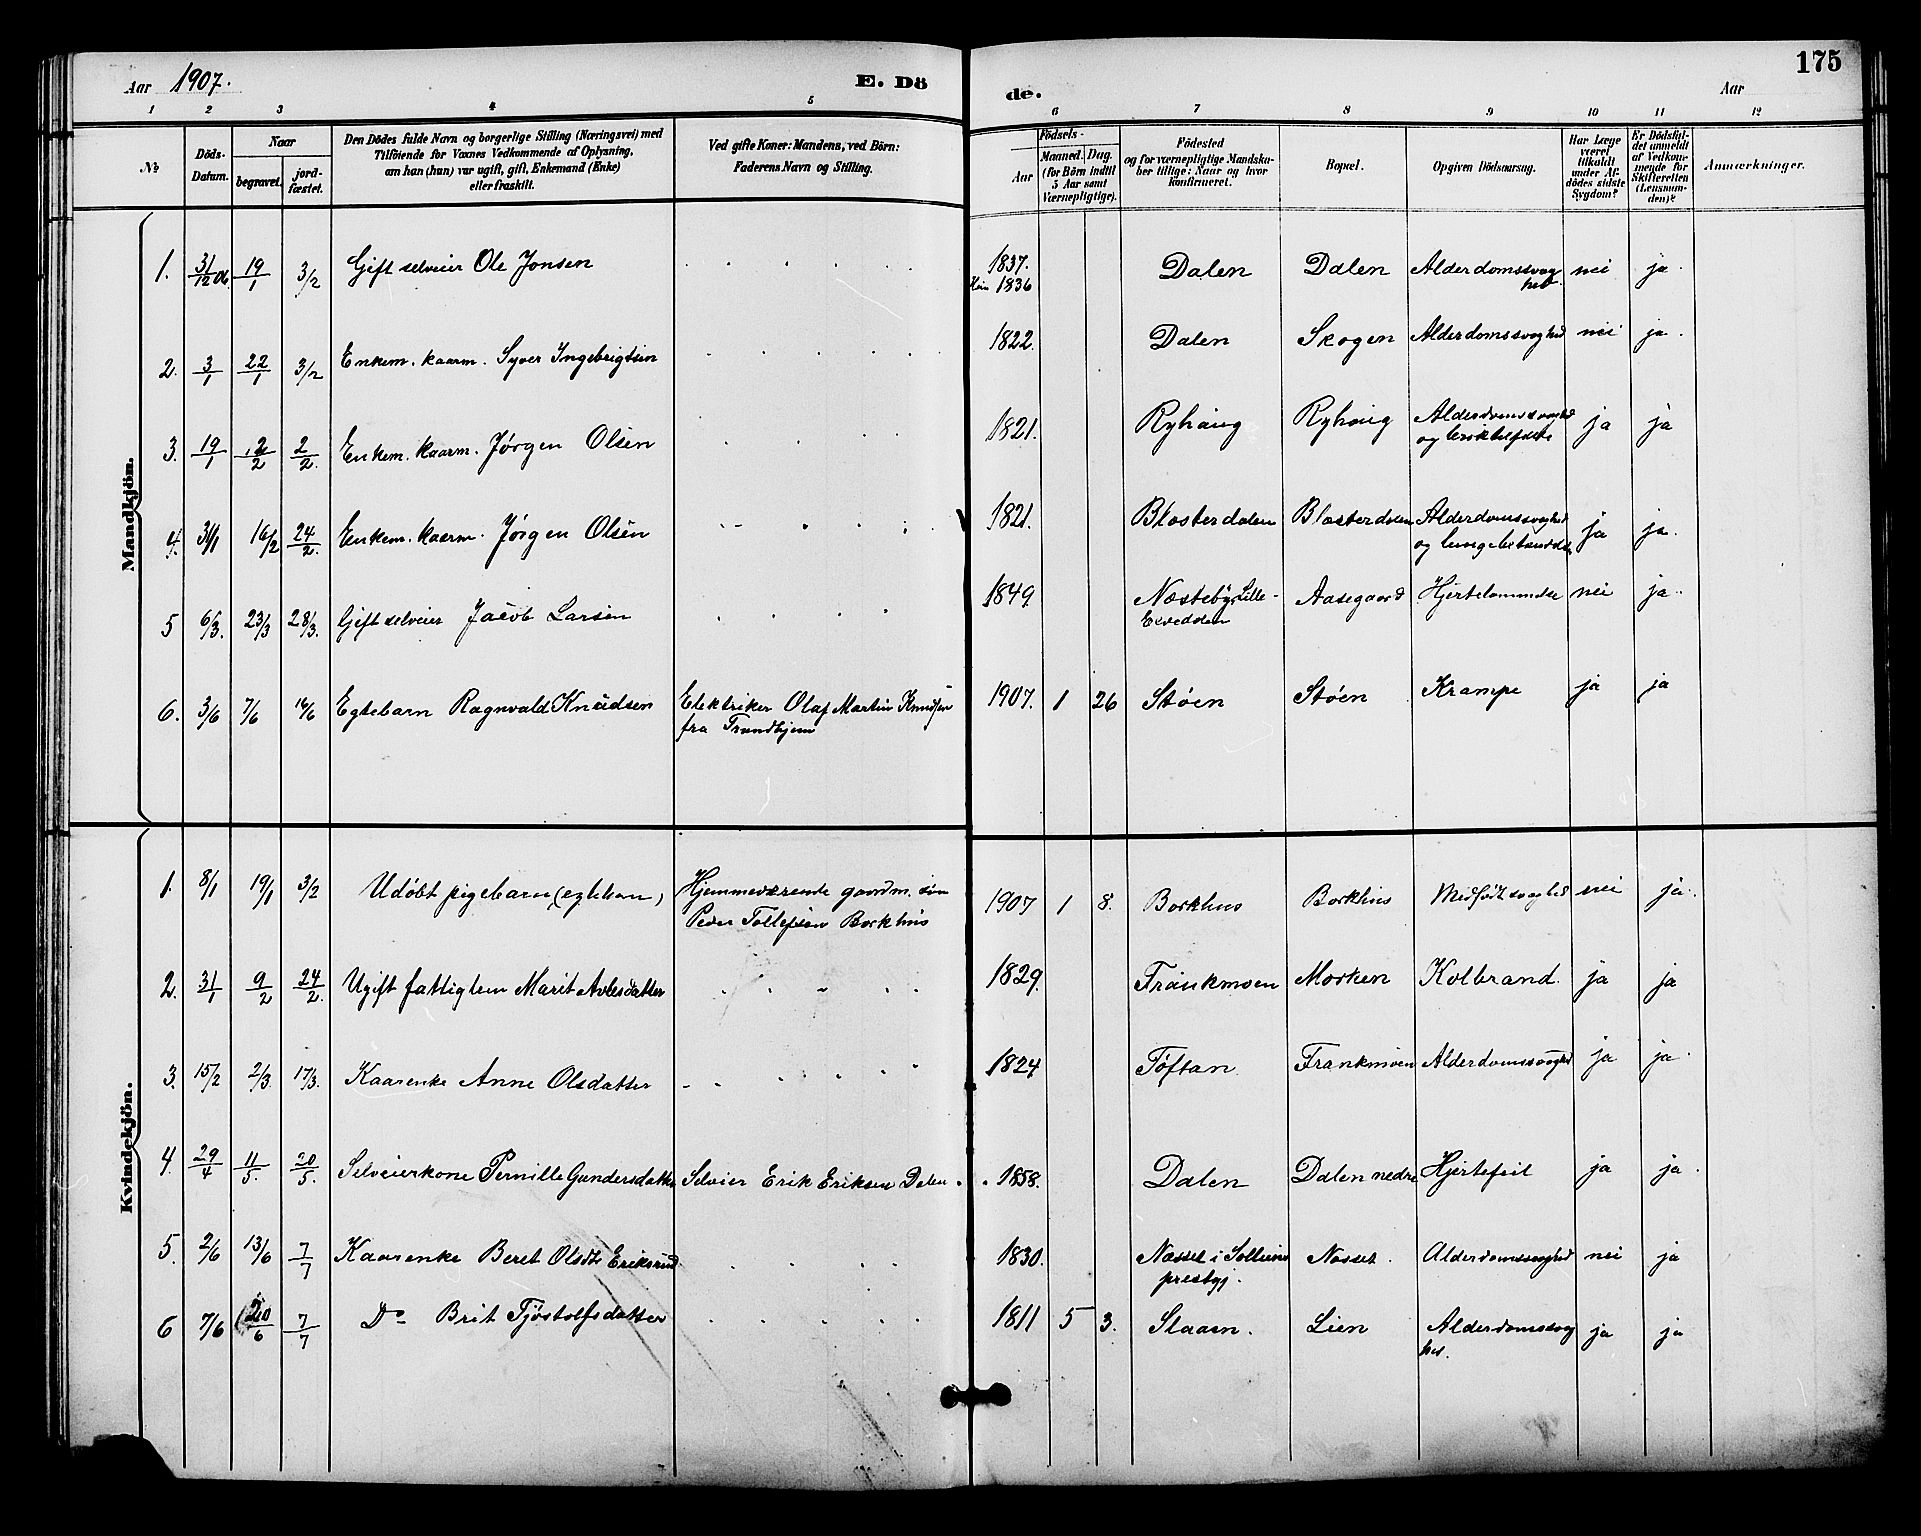 Aar 1907. E. Dö de. Aar 175
1 2 3 4 5 6 7 8 9 10 11 12
№
Döds-Datum.
Naar
begravet.
jordfæstet.
Den Dödes fulde Navn og borgerlige Stilling (Næringsvei) med
Tilföiende for Voxnes Vedkommende af Oplysning,
om han (hun) var ugift, gift, Enkemand (Enke)
eller fraskilt.
Ved gifte Koner: Mandens, ved Börn:
Faderens Navn og Stilling.
Födsels-
Aar
Maaned. Dag.
(for Börn indtil
5 Aar samt
Værnepligtige).
Födested
og for værnepligtige Mandskaber tillige: Naar og hvor
konfirmeret.
Bopæl.
Opgiven Dödsaarsag.
Har Læge
været
tilkaldt
under Afdödes sidste
Sygdom?
Er Dödsfaldet anmeldt
af Vedkommende for
Skifteretten
(Lensmanden)?
Anmærkninger.
Mandkjön.
1. 31/12 06 19/1 3/2 Gift selveier Ole Jonsen 1837. 1836 Dalen Dalen Alderdomssvaghed. nei ja.
2. 3/1 22/1 3/2 Enkem. kaarm. Syver Ingebrigtsen 1822. Dalen Skogen Alderdomssvaghed nei ja.
3. 19/1 2/2 2/2. Enkem. kaarm. Jørgen Olsen 1821. Ryhaug Ryhaug Alderdomssvaghed
og ja ja
4. 31/1 16/2 24/2. Enkem. kaarm. Jørgen Olsen 1821. Blæsterdalen Blæsterdalen Alderdomssvaghed
og lungebetændelse ja ja.
5 6/3. 23/3 28/3. Gift selveier Jacob Larsen 1849. Næsteby Lille-
Elvedalen Aasegaard Hjertelammelse nei ja.
6. 3/6 7/6 16/6 Egtebarn Ragnvald Knudsen Elektriker Olaf Martin Knudsen
fra Trondhjem 1907. 1 26 Støen Støen Krampe ja ja
Kvindekjön.
1. 8/1 19/1 3/2 Udøbt pigebarn (egtebarn) Hjemmeværende gaardm. søn
Peder Tollefsen Borkhus 1907 1 8. Borkhus Borkhus Medfødt svaghed nei ja.
2. 31/1 9/2 24/2. Ugift fattiglem Marit Avlesdatter 1829. Frankmoen Morken Kolbrand. ja ja
3. 15/2 2/3. 17/3. Kaarenke Anne Olsdatter 1824 Tøftan Frankmoen Alderdomssvaghed ja ja.
4. 29/4 11/5. 20/5. Selveierkone Pernille Gundersdatter Selvier Erik Eriksen Dalen. 1858. Dalen Dalen nedre Hjertefeil ja ja.
5. 2/6 13/6 7/7 Kaarenke Beret Olsdtr Eriksrud 1830. Næsset i Sollien
prestgj. Næsset. Alderdomssvaghed nei ja
6 7/6 20/6 7/7 Do Brit Tjøstolfsdatter 1811 5 3. Slaaen. Lien Alderdomssvaghed. ja ja